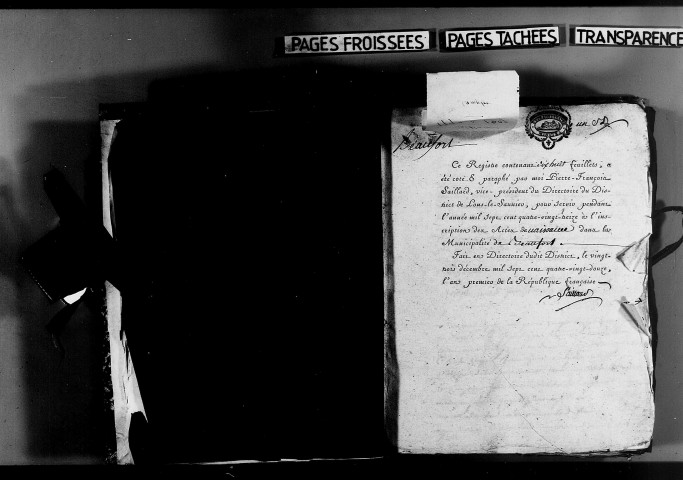 PAGES FROISSEES PAGES TACHEES TRANSPARENCE
Beaufort
un
Ce Registre contenant dixhuit feuillets, a
été coté & paraphé par moi Pierre-François
Saillard, vice-président du Directoire du Dis-
trict de Lons-le-Saunier, pour servir pendant
l'année mil sept cent quatre-vingt-treize à l'ins-
cription des Actes de naissance dans la
Municipalité de Beaufort
Fait en Directoire dudit District, le vingt-
trois décembre mil sept cent quatre-vingt-douze,
l'an premier de la République française
Saillard